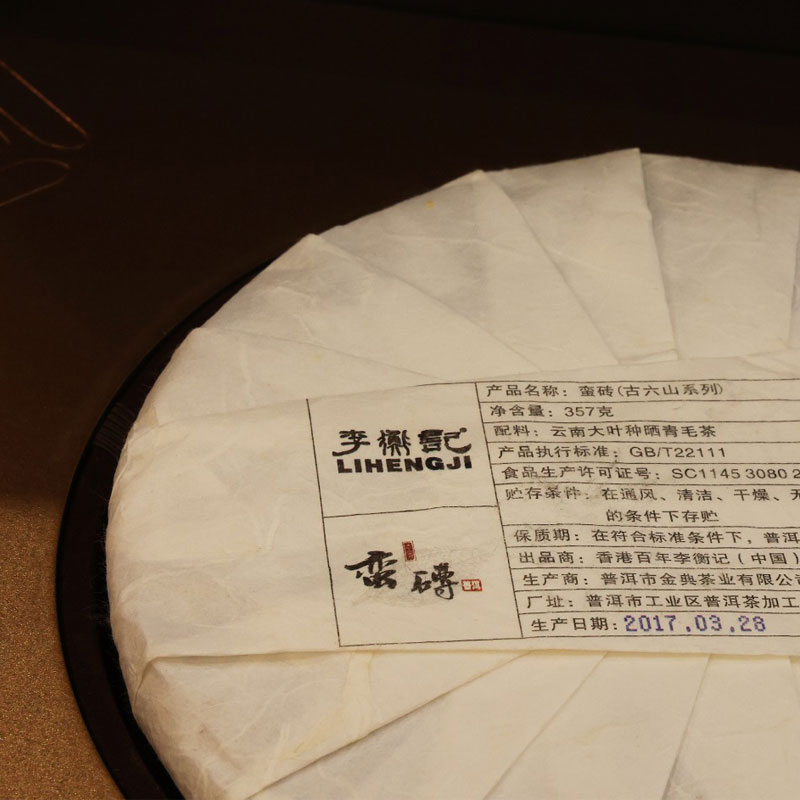 李衡记
LIHENGJI
蛮磚
普洱
产品名称：蛮砖(古六山系列)
净含量：357克
配料：云南大叶种晒青毛茶
产品执行标准：GB/T22111
食品生产许可证号：SC1145 3080 2
贮存条件：在通风、清洁、干燥、无
的条件下存贮
保质期：在符合标准条件下，普洱
出品商：香港百年李衡记（中国）
生产商：普洱市金典茶业有限公司
厂址：普洱市工业区普洱茶加工
生产日期：2017.03.28